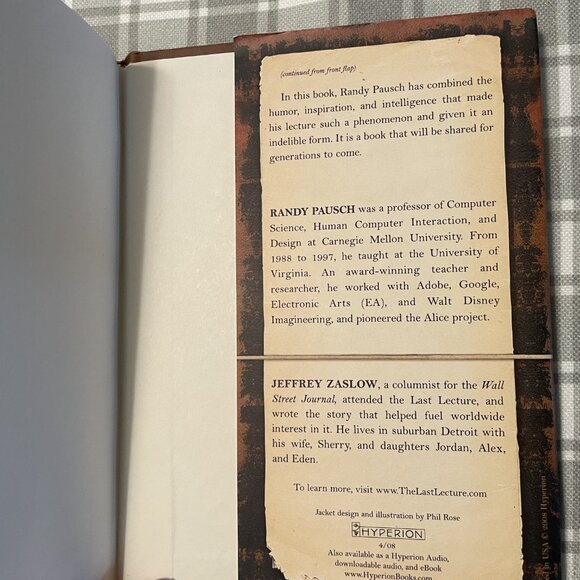 (continued from front flap)
In this book, Randy Pausch has combined the
humor, inspiration, and intelligence that made
his lecture such a phenomenon and given it an
indelible form. It is a book that will be shared for
generations to come.
RANDY PAUSCH was a professor of Computer
Science, Human Computer Interaction, and
Design at Carnegie Mellon University. From
1988 to 1997, he taught at the University of
Virginia. An award-winning teacher and
researcher, he worked with Adobe, Google,
Electronic Arts (EA), and Walt Disney
Imagineering, and pioneered the Alice project.
JEFFREY ZASLOW, a columnist for the Wall
Street Journal, attended the Last Lecture, and
wrote the story that helped fuel worldwide
interest in it. He lives in suburban Detroit with
his wife, Sherry, and daughters Jordan, Alex,
and Eden.
To learn more, visit www.TheLastLecture.com
Jacket design and illustration by Phil Rose
HYPERION
4/08
Also available as a Hyperion Audio,
downloadable audio, and eBook
www.HyperionBooks.com
in USA © 2008 Hyperion